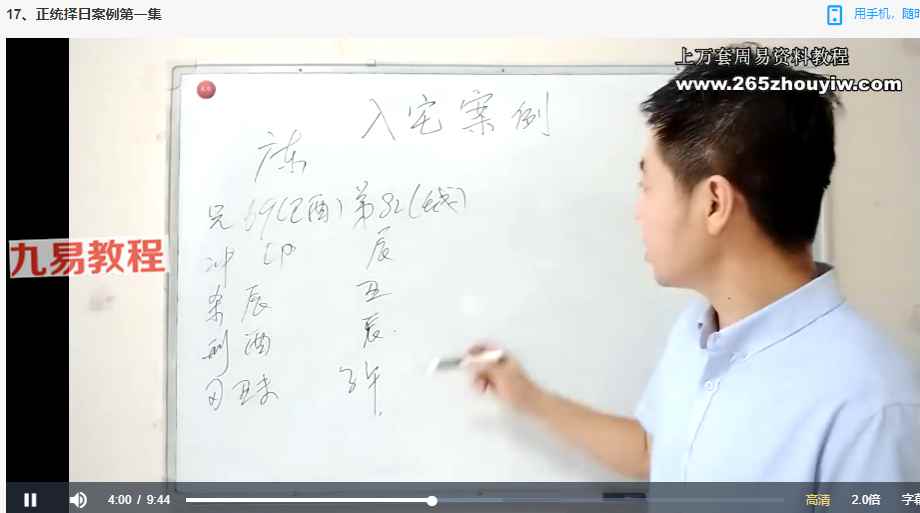 17、正统择日案例第一集
用手机，随时
上万套周易资料教程
www.265zhouyiw.com
入宅案例
广东
兄69(己酉) 第82(壬戌)
冲 卯 辰
九易教程
杀 辰 丑
刑 酉
刃 丑未 子午
4:00 / 9:44
高清 2.0倍 字幕